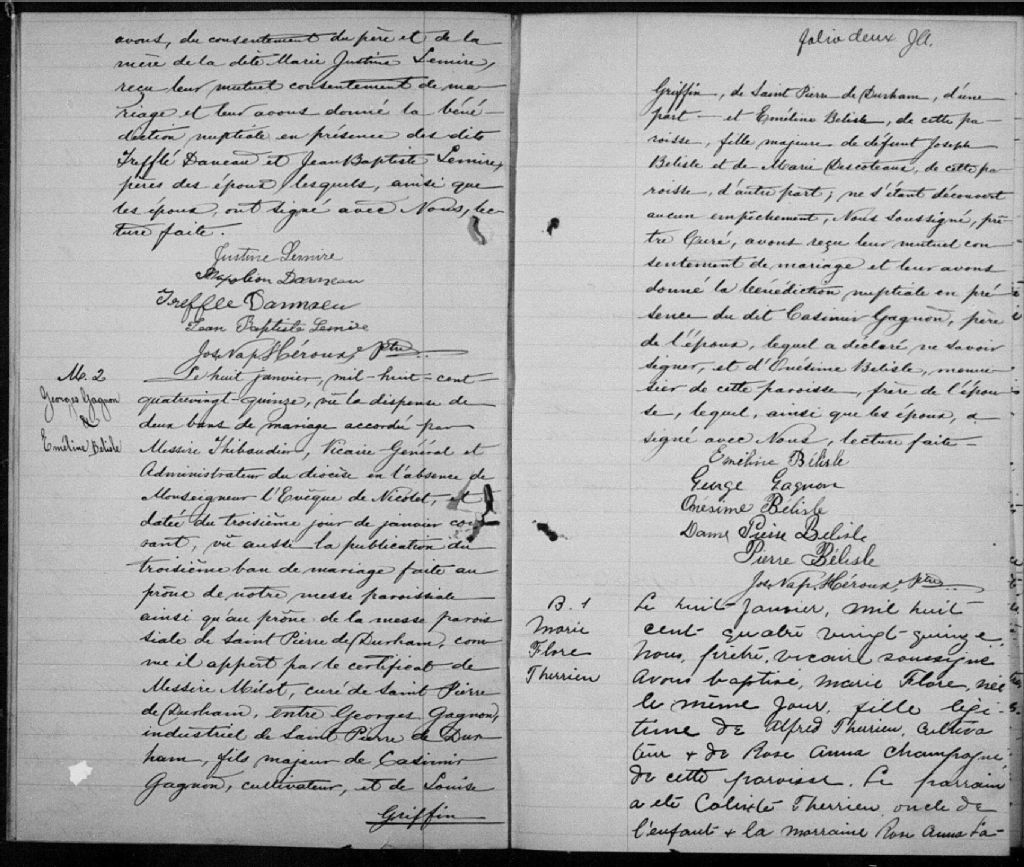 avons, du consentement du père et de la
mère de la dite Marie Justine Lemire,
reçu leur mutuel consentement de ma-
riage et leur avons donné la béné-
diction nuptiale en présence des dits
Trefflé Daneau et Jean Baptiste Lemire,
pères des époux, lesquels, ainsi que
les époux, ont signé avec Nous, lec-
ture faite.
Justine Lemire
Napoléon Danneau
Treffle Danneau
Jean Baptiste Lemire
Jos. Nap. Héroux, Ptre
M. 2
Georges Gagnon
&
Eméline Belisle
Le huit janvier, mil-huit-cent-
quatrevingt-quinze, vû la dispense de
deux bans de mariage accordée par
Messire Thibaudier, Vicaire Général et
Administrateur du diocèse en l'absence de
Monseigneur l'Evêque de Nicolet, et
datée du troisième jour de janvier cou-
rant, vû aussi la publication du
troisième ban de mariage faite au
prône de notre messe paroissiale
ainsi qu'au prône de la messe parois-
siale de Saint Pierre de Durham, com-
me il appert par le certificat de
Messire Milot, curé de Saint Pierre
de Durham, entre Georges Gagnon,
industriel de Saint Pierre de Dur-
ham, fils majeur de Casimir
Gagnon, cultivateur, et de Louise
Griffin
folio deux
Griffin, de Saint Pierre de Durham, d'une
part — et Eméline Belisle, de cette pa-
roisse, fille majeure de défunt Joseph
Belisle et de Marie Descoteaux, de cette pa-
roisse, d'autre part; ne s'étant découvert
aucun empêchement, Nous soussigné, prê-
tre Curé, avons reçu leur mutuel con
sentement de mariage et leur avons
donné la bénédiction nuptiale en pré-
sence du dit Casimir Gagnon, père
de l'époux, lequel a déclaré ne savoir
signer, et d'Onésime Belisle, menui-
sier de cette paroisse, frère de l'épou-
se, lequel, ainsi que les époux, a
signé avec Nous, lecture faite —
Eméline Bélisle
George Gagnon
Onésime Bélisle
Dame Pierre Belisle
Pierre Bélisle
Jos. Nap. Héroux, Ptre
B. 1
Marie
Flore
Therrien
Le huit Janvier, mil huit
cent quatre vingt-quinze,
Nous, prêtre, vicaire soussigné
avons baptisé, Marie Flore, née
le même jour, fille légi-
time de Alfred Therrien, cultiva
teur & de Rose Anna Champagne
de cette paroisse. Le parrain
a été Calixte Therrien oncle de
l'enfant & la marraine Rose Anna La-